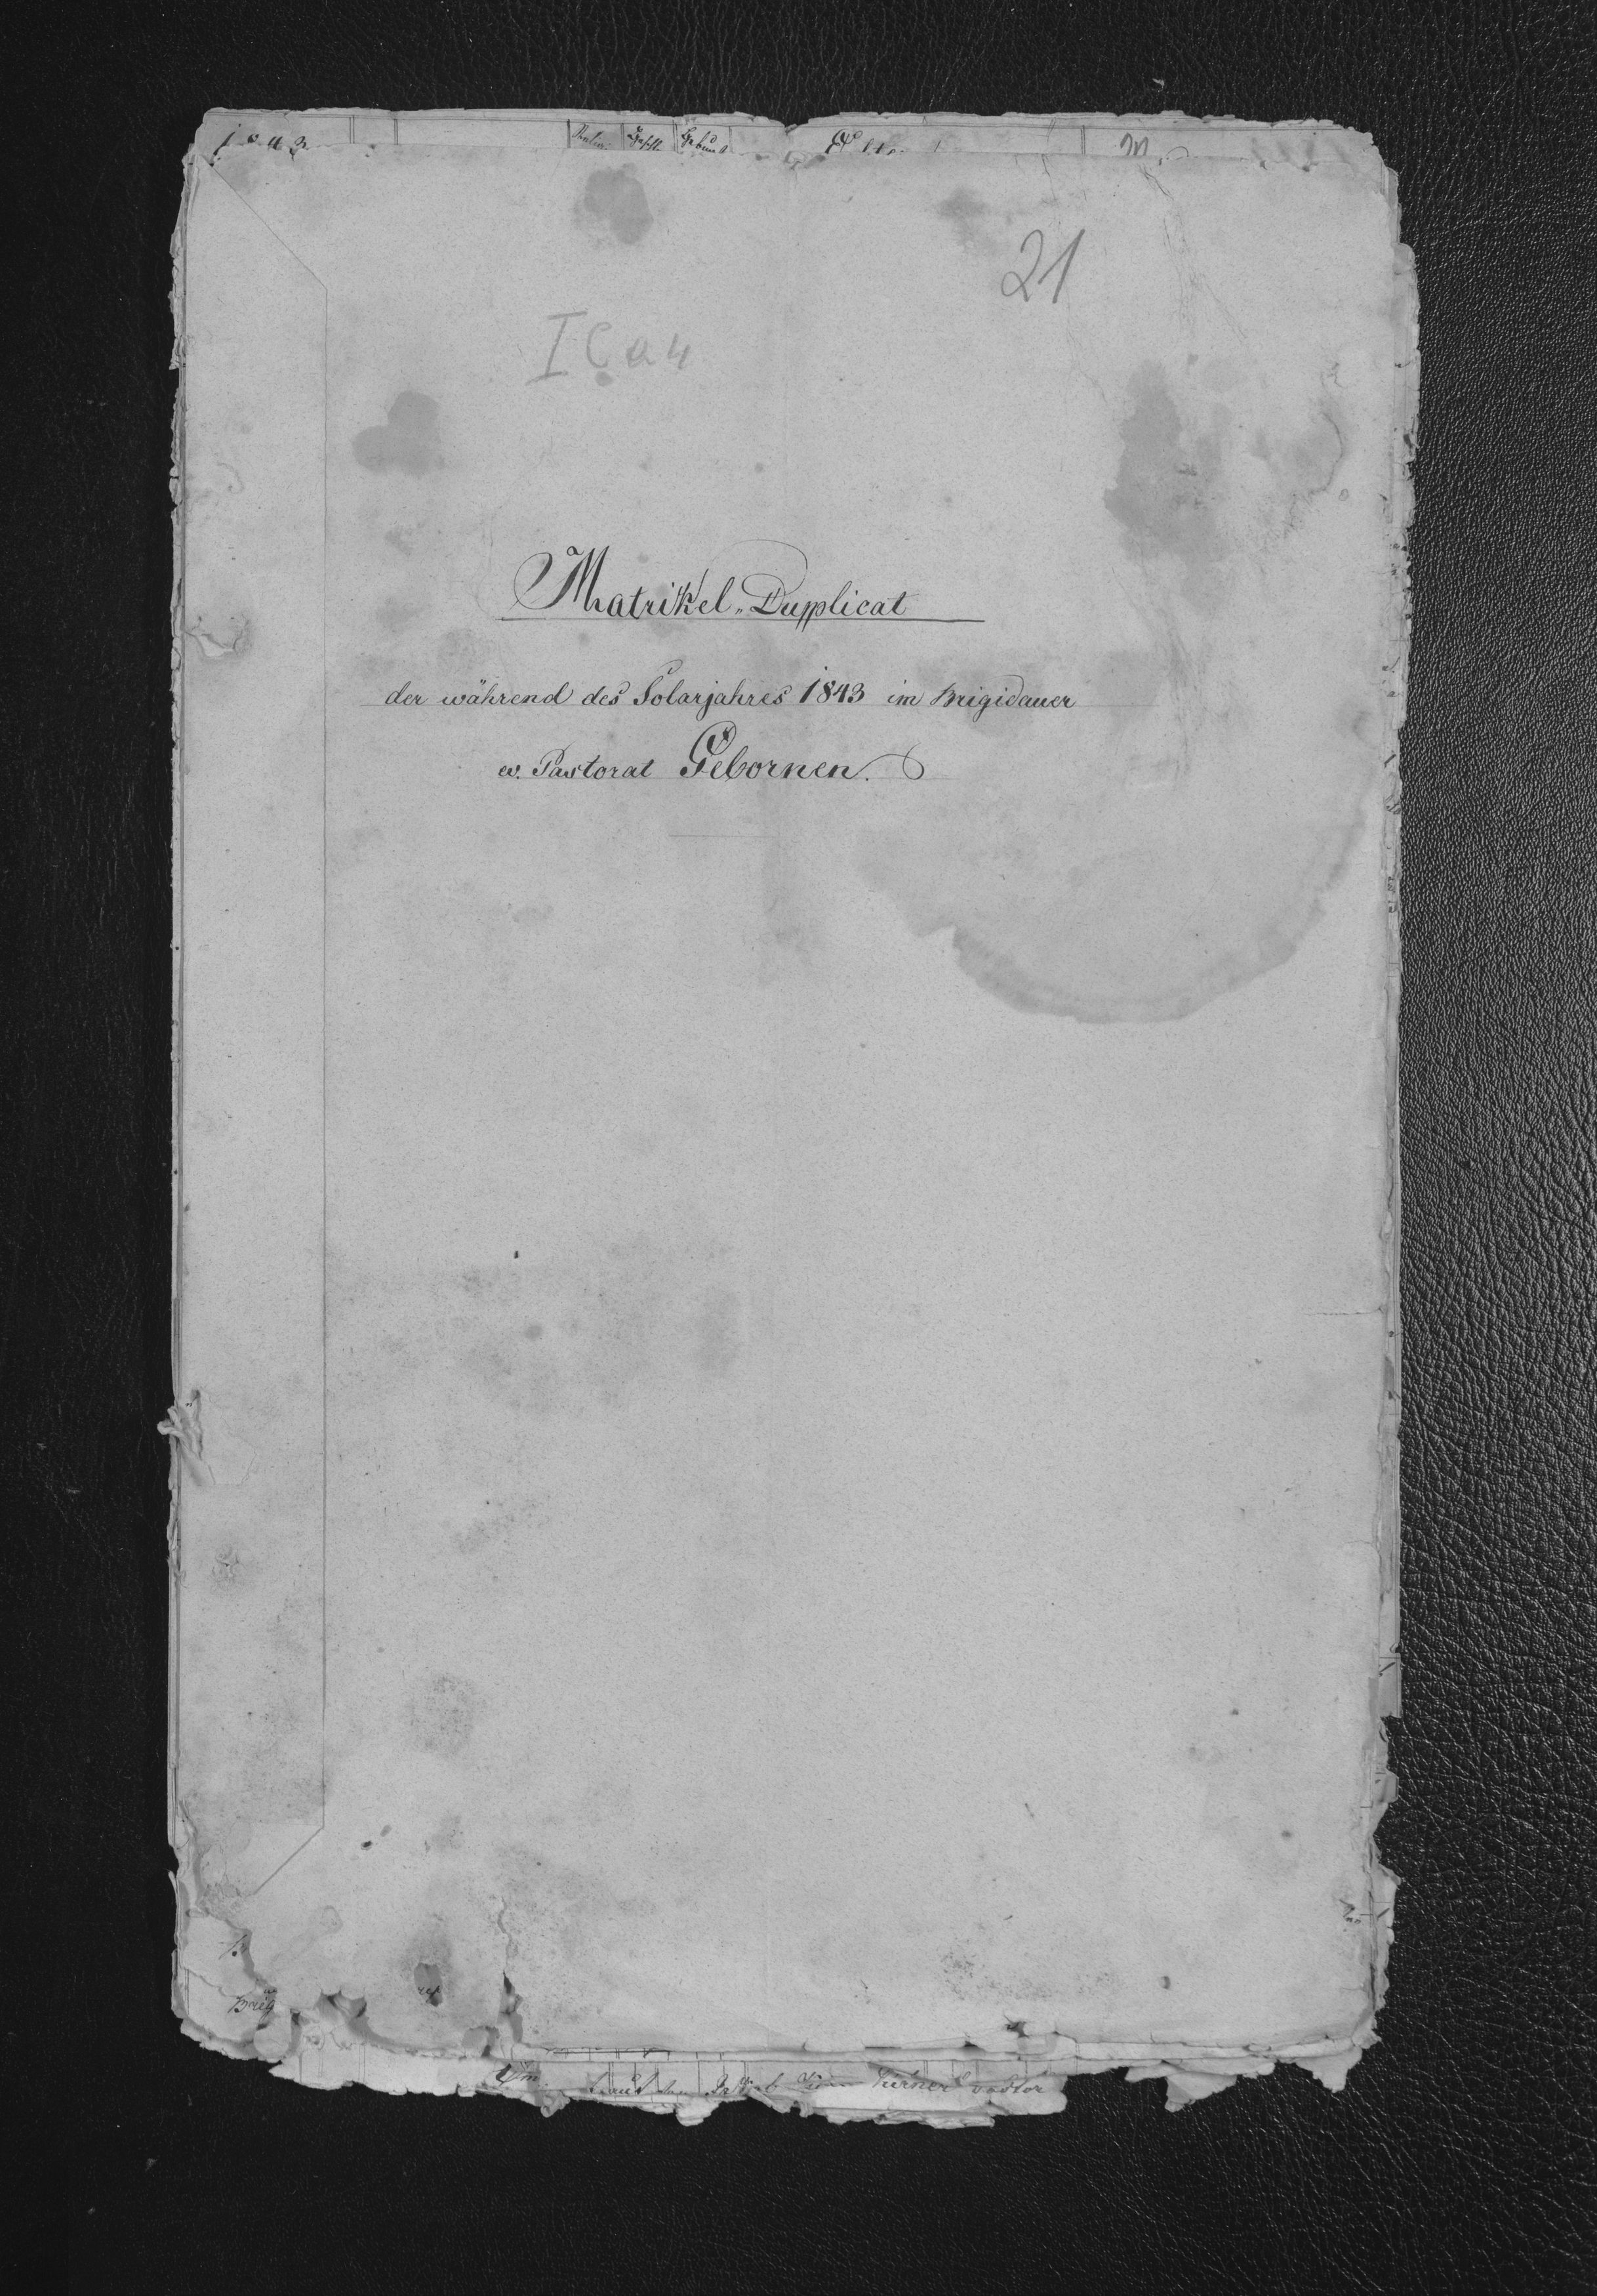 1843
Eltern
21
I C a 4
Matrikel„Dupplicat
der während des Solarjahres 1843 im Brigidauer
ev. Pastorat Gebornen.
Brig